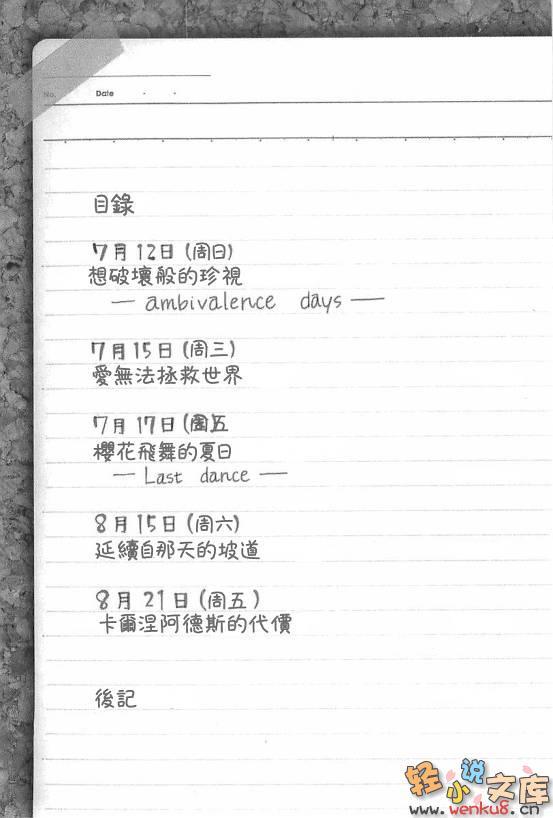 No. Date
目錄
7月12日 (周日)
想破壞般的珍視
— ambivalence days —
7月15日 (周三)
愛無法拯救世界
7月17日 (周五
櫻花飛舞的夏日
— Last dance —
8月15日 (周六)
延續自那天的坡道
8月21日 (周五)
卡爾涅阿德斯的代價
後記
轻小说文库
www.wenku8.cn